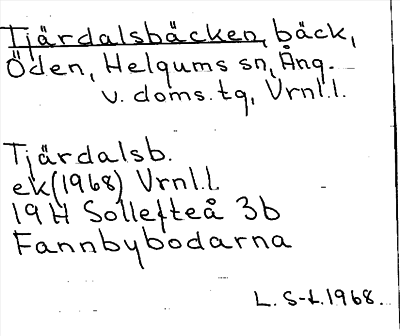 Tjärdalsbäcken, bäck,
Öden, Helgums sn, Ång.
v. doms.tg, Vrnl.l.
Tjärdalsb.
ek(1968) Vrnl.l.
19H Sollefteå 3b
Fannbybodarna
L. S-L.1968.